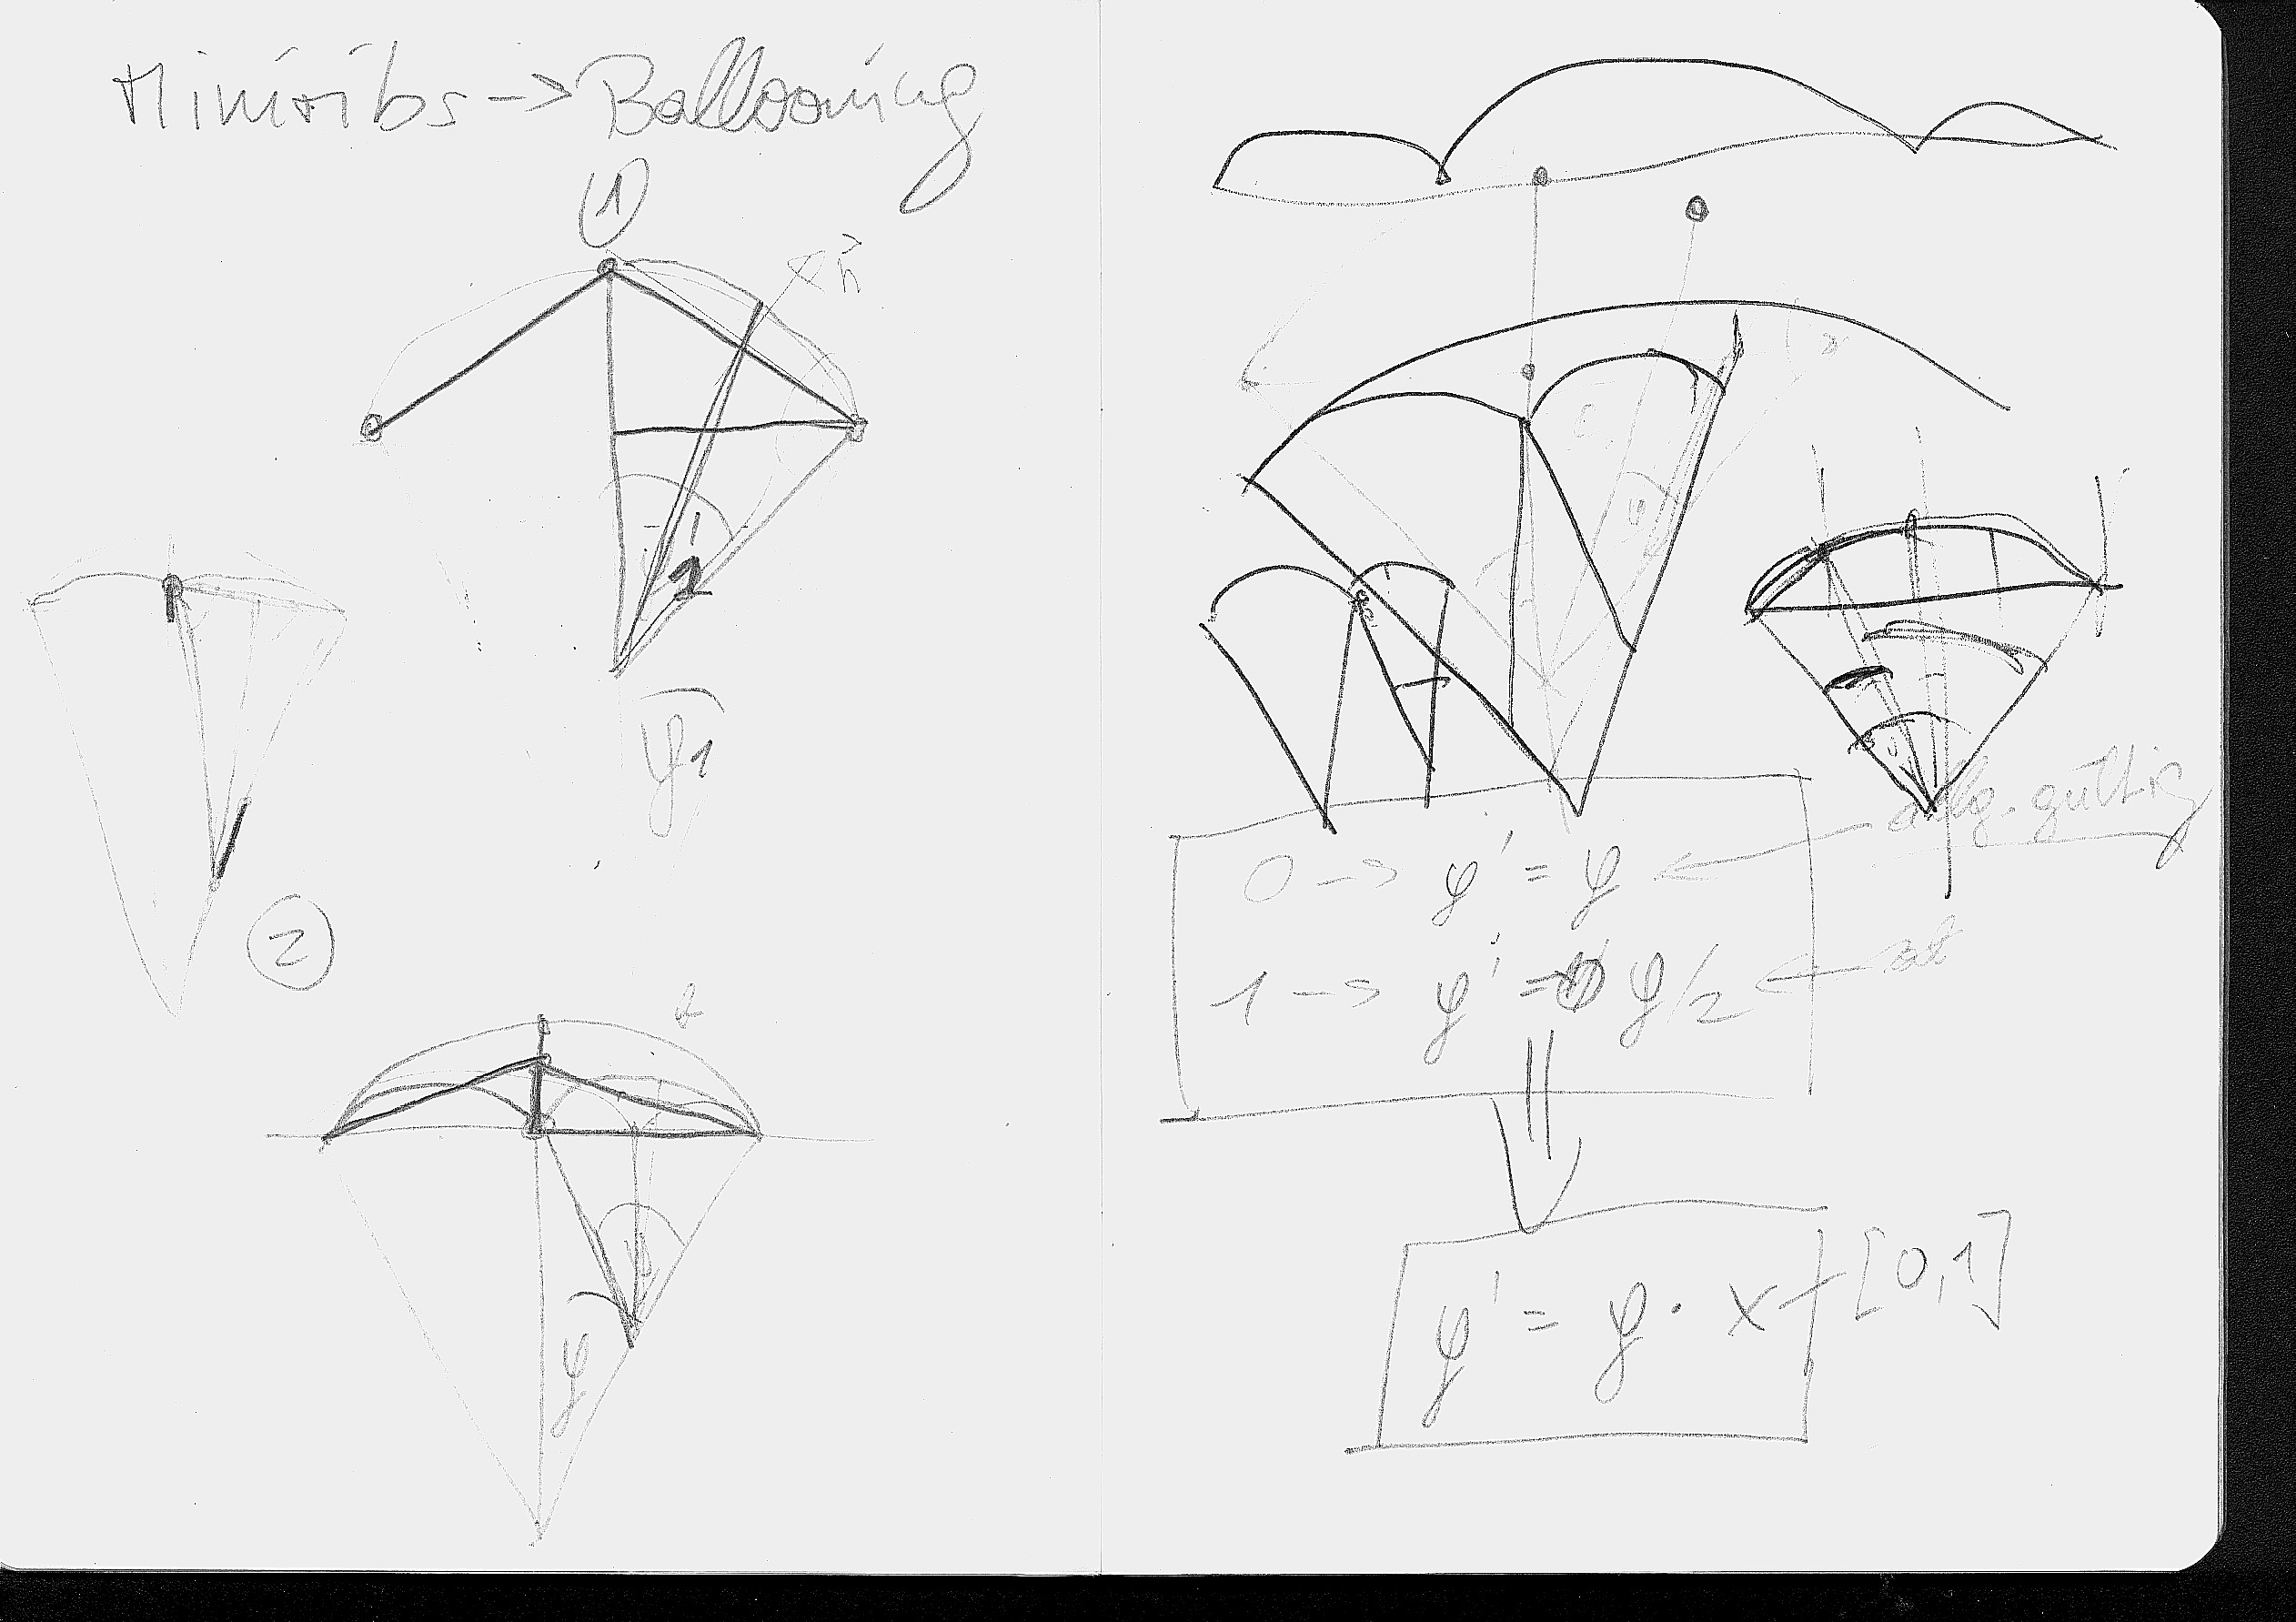 Miniribs -> Ballooning
1
n
1
φ1
2
φ
0 -> φ' = φ <- allg. gültig
1 -> φ' = φ/2 <-
φ' = φ · x [0,1]